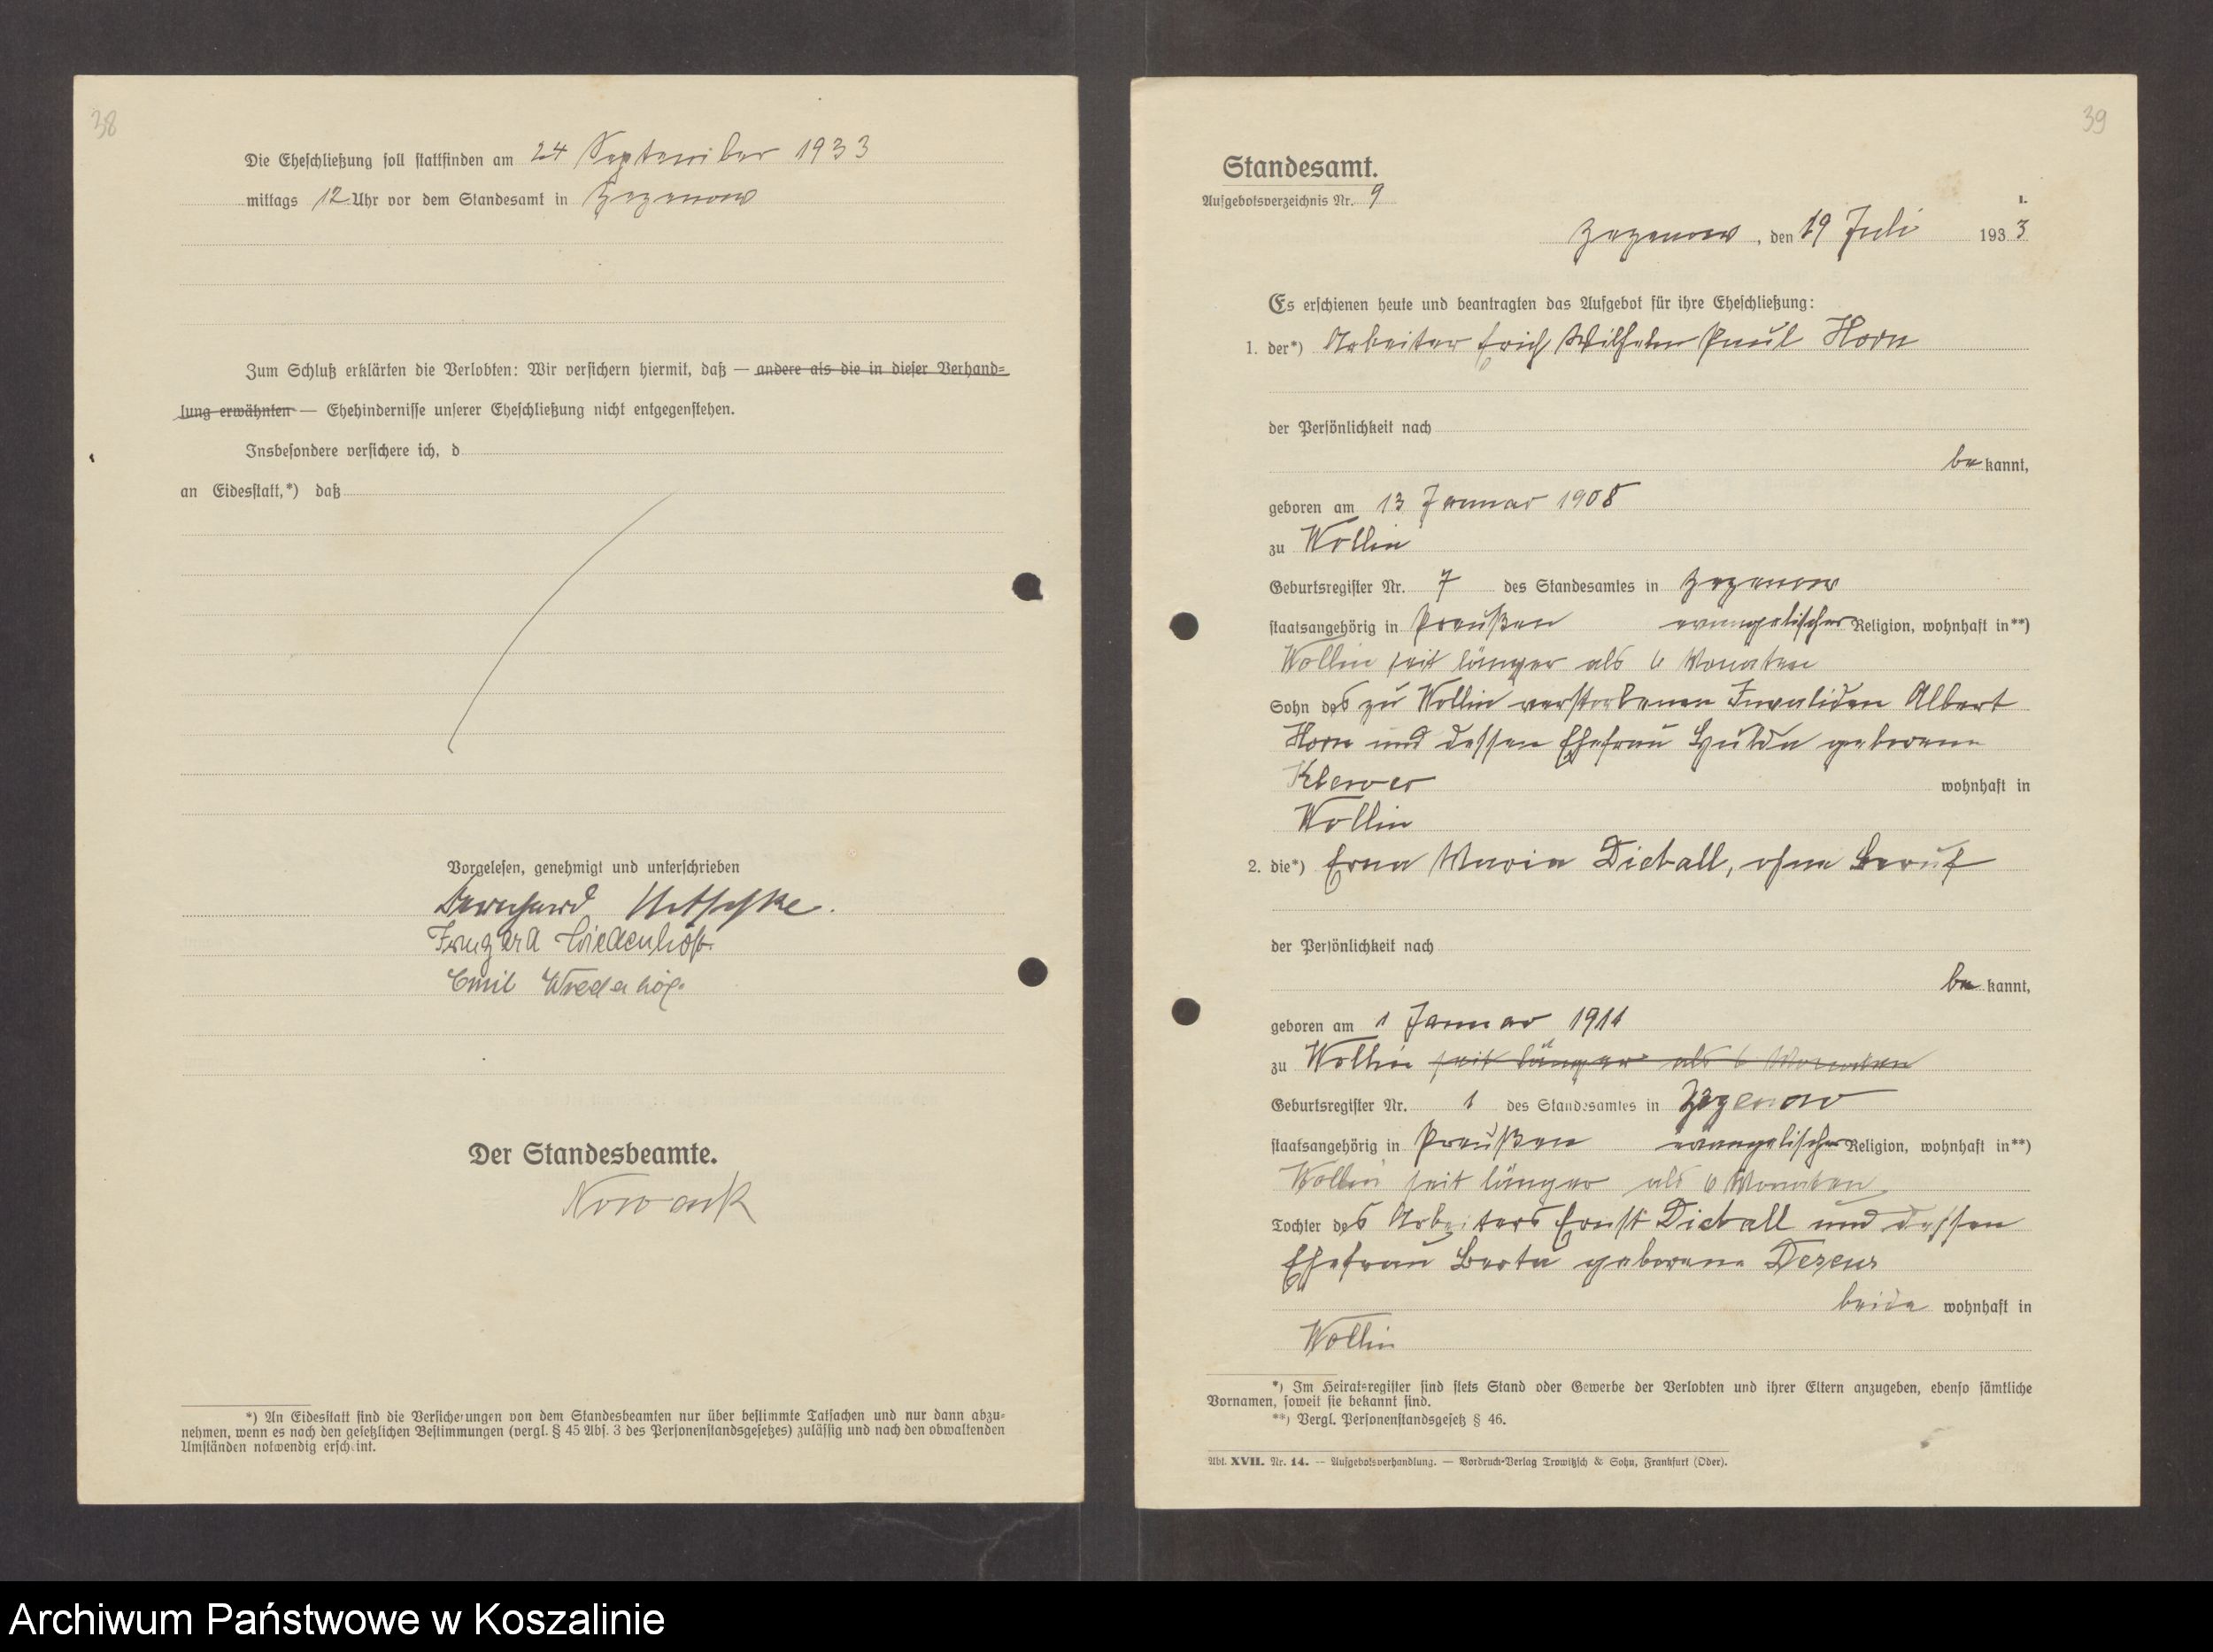 38
Die Eheschließung soll stattfinden am 24 September 1933
mittags 12 Uhr vor dem Standesamt in Zezenow
Zum Schluß erklärten die Verlobten: Wir versichern hiermit, daß — andere als die in dieser Verhand-
lung erwähnten — Ehehindernisse unserer Eheschließung nicht entgegenstehen.
Insbesondere versichere ich, d
an Eidesstatt,*) daß
Vorgelesen, genehmigt und unterschrieben
Bernhard
Irmgard
Emil
Der Standesbeamte.
Nowack
*) An Eidesstatt sind die Versicherungen von dem Standesbeamten nur über bestimmte Tatsachen und nur dann abzu-
nehmen, wenn es nach den gesetzlichen Bestimmungen (vergl. § 45 Abs. 3 des Personenstandsgesetzes) zulässig und nach den obwaltenden
Umständen notwendig erscheint.
39
Standesamt.
Aufgebotsverzeichnis Nr. 9
1.
Zezenow, den 19 Juli 1933
Es erschienen heute und beantragten das Aufgebot für ihre Eheschließung:
1. der*) Arbeiter Erich Wilhelm Paul Horn
der Persönlichkeit nach
bekannt,
geboren am 13 Januar 1908
zu Wollin
Geburtsregister Nr. 7 des Standesamtes in Zezenow
staatsangehörig in Preußen evangelischer Religion, wohnhaft in**)
Wollin seit länger als 6 Monaten
Sohn des zu Wollin verstorbenen Invaliden Albert
Horn und dessen Ehefrau Hulda geborene
wohnhaft in
Wollin
2. die*) Erna Maria Dietall, ohne Beruf
der Persönlichkeit nach
bekannt,
geboren am 1 Januar 1911
zu Wollin seit länger als 6 Monaten
Geburtsregister Nr. 1 des Standesamtes in Zezenow
staatsangehörig in Preußen evangelischer Religion, wohnhaft in**)
Wollin seit länger als 6 Monaten
Tochter des Arbeiters Ernst Dietall und dessen
Ehefrau Berta geborene
beide wohnhaft in
Wollin
*) Im Heiratsregister sind stets Stand oder Gewerbe der Verlobten und ihrer Eltern anzugeben, ebenso sämtliche
Vornamen, soweit sie bekannt sind.
**) Vergl. Personenstandsgesetz § 46.
Abt. XVII. Nr. 14. — Aufgebotsverhandlung. — Vordruck-Verlag Trowitzsch & Sohn, Frankfurt (Oder).
Archiwum Państwowe w Koszalinie